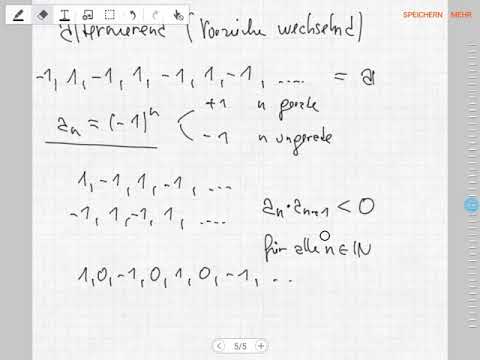 SPEICHERN MEHR
alternierend (Vorzeichen wechselnd)
-1, 1, -1, 1, -1, 1, -1, .... = a
aₙ = (-1)ⁿ < +1 n gerade
-1 n ungerade
1, -1, 1, -1, ...
-1, 1, -1, 1, .... aₙ · aₙ₊₁ < 0
für alle n ∈ ℕ
1, 0, -1, 0, 1, 0, -1, ..
5/5